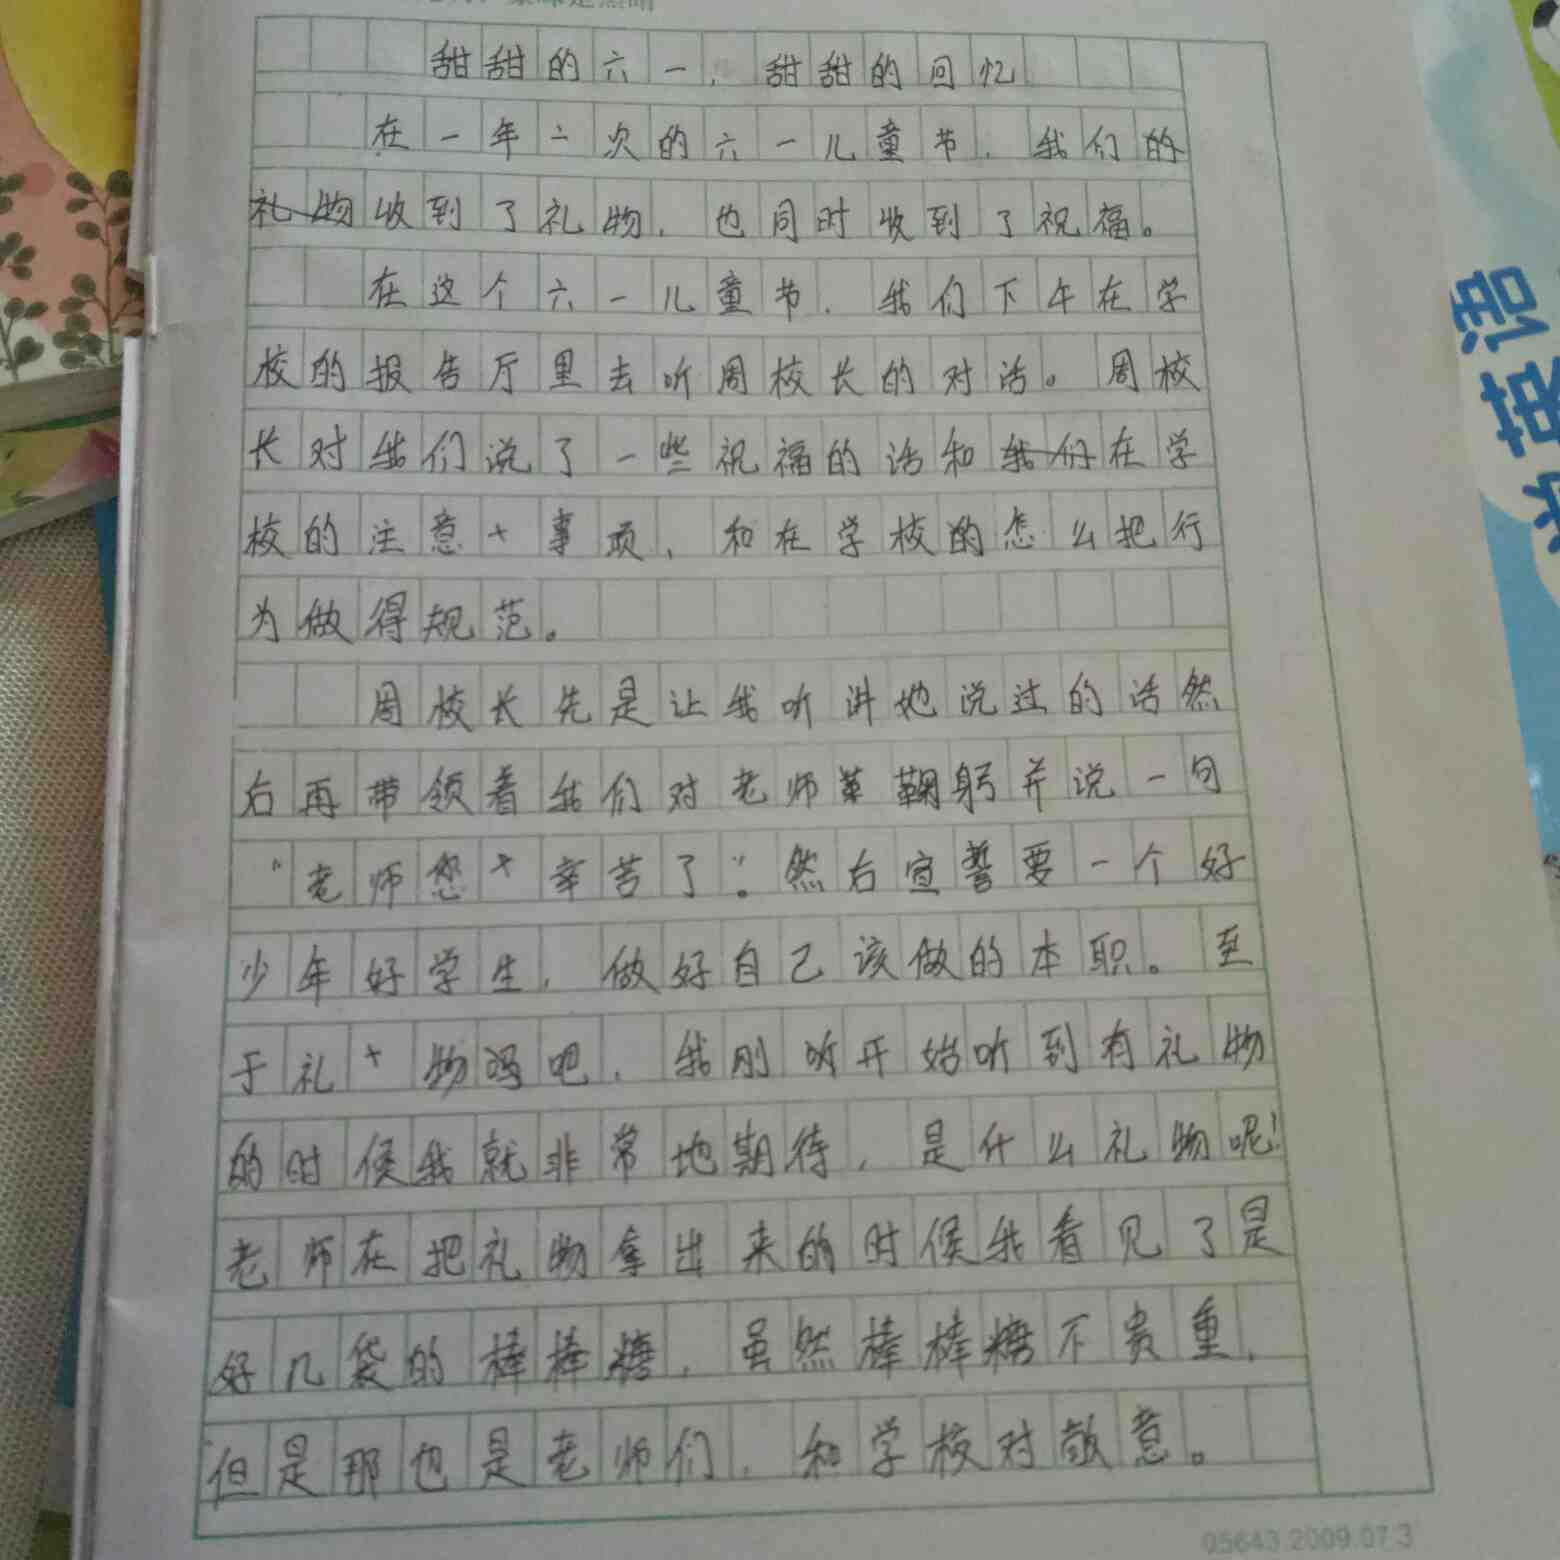 甜甜的六一，甜甜的回忆
在一年一次的六一儿童节，我们的
礼物收到了礼物，也同时收到了祝福。
在这个六一儿童节，我们下午在学
校的报告厅里去听周校长的对话。周校
长对我们说了一些祝福的话和我们在学
校的注意事项，和在学校的怎么把行
为做得规范。
周校长先是让我听讲她说过的话然
后再带领着我们对老师鞠躬并说一句
“老师您辛苦了”。然后宣誓要一个好
少年好学生，做好自己该做的本职。至
于礼物吗吧，我刚听开始听到有礼物
的时候我就非常地期待，是什么礼物呢！
老师在把礼物拿出来的时候我看见了是
好几袋的棒棒糖，虽然棒棒糖不贵重，
但是那也是老师们，和学校对敬意。
05643 2009.07.3
语
英